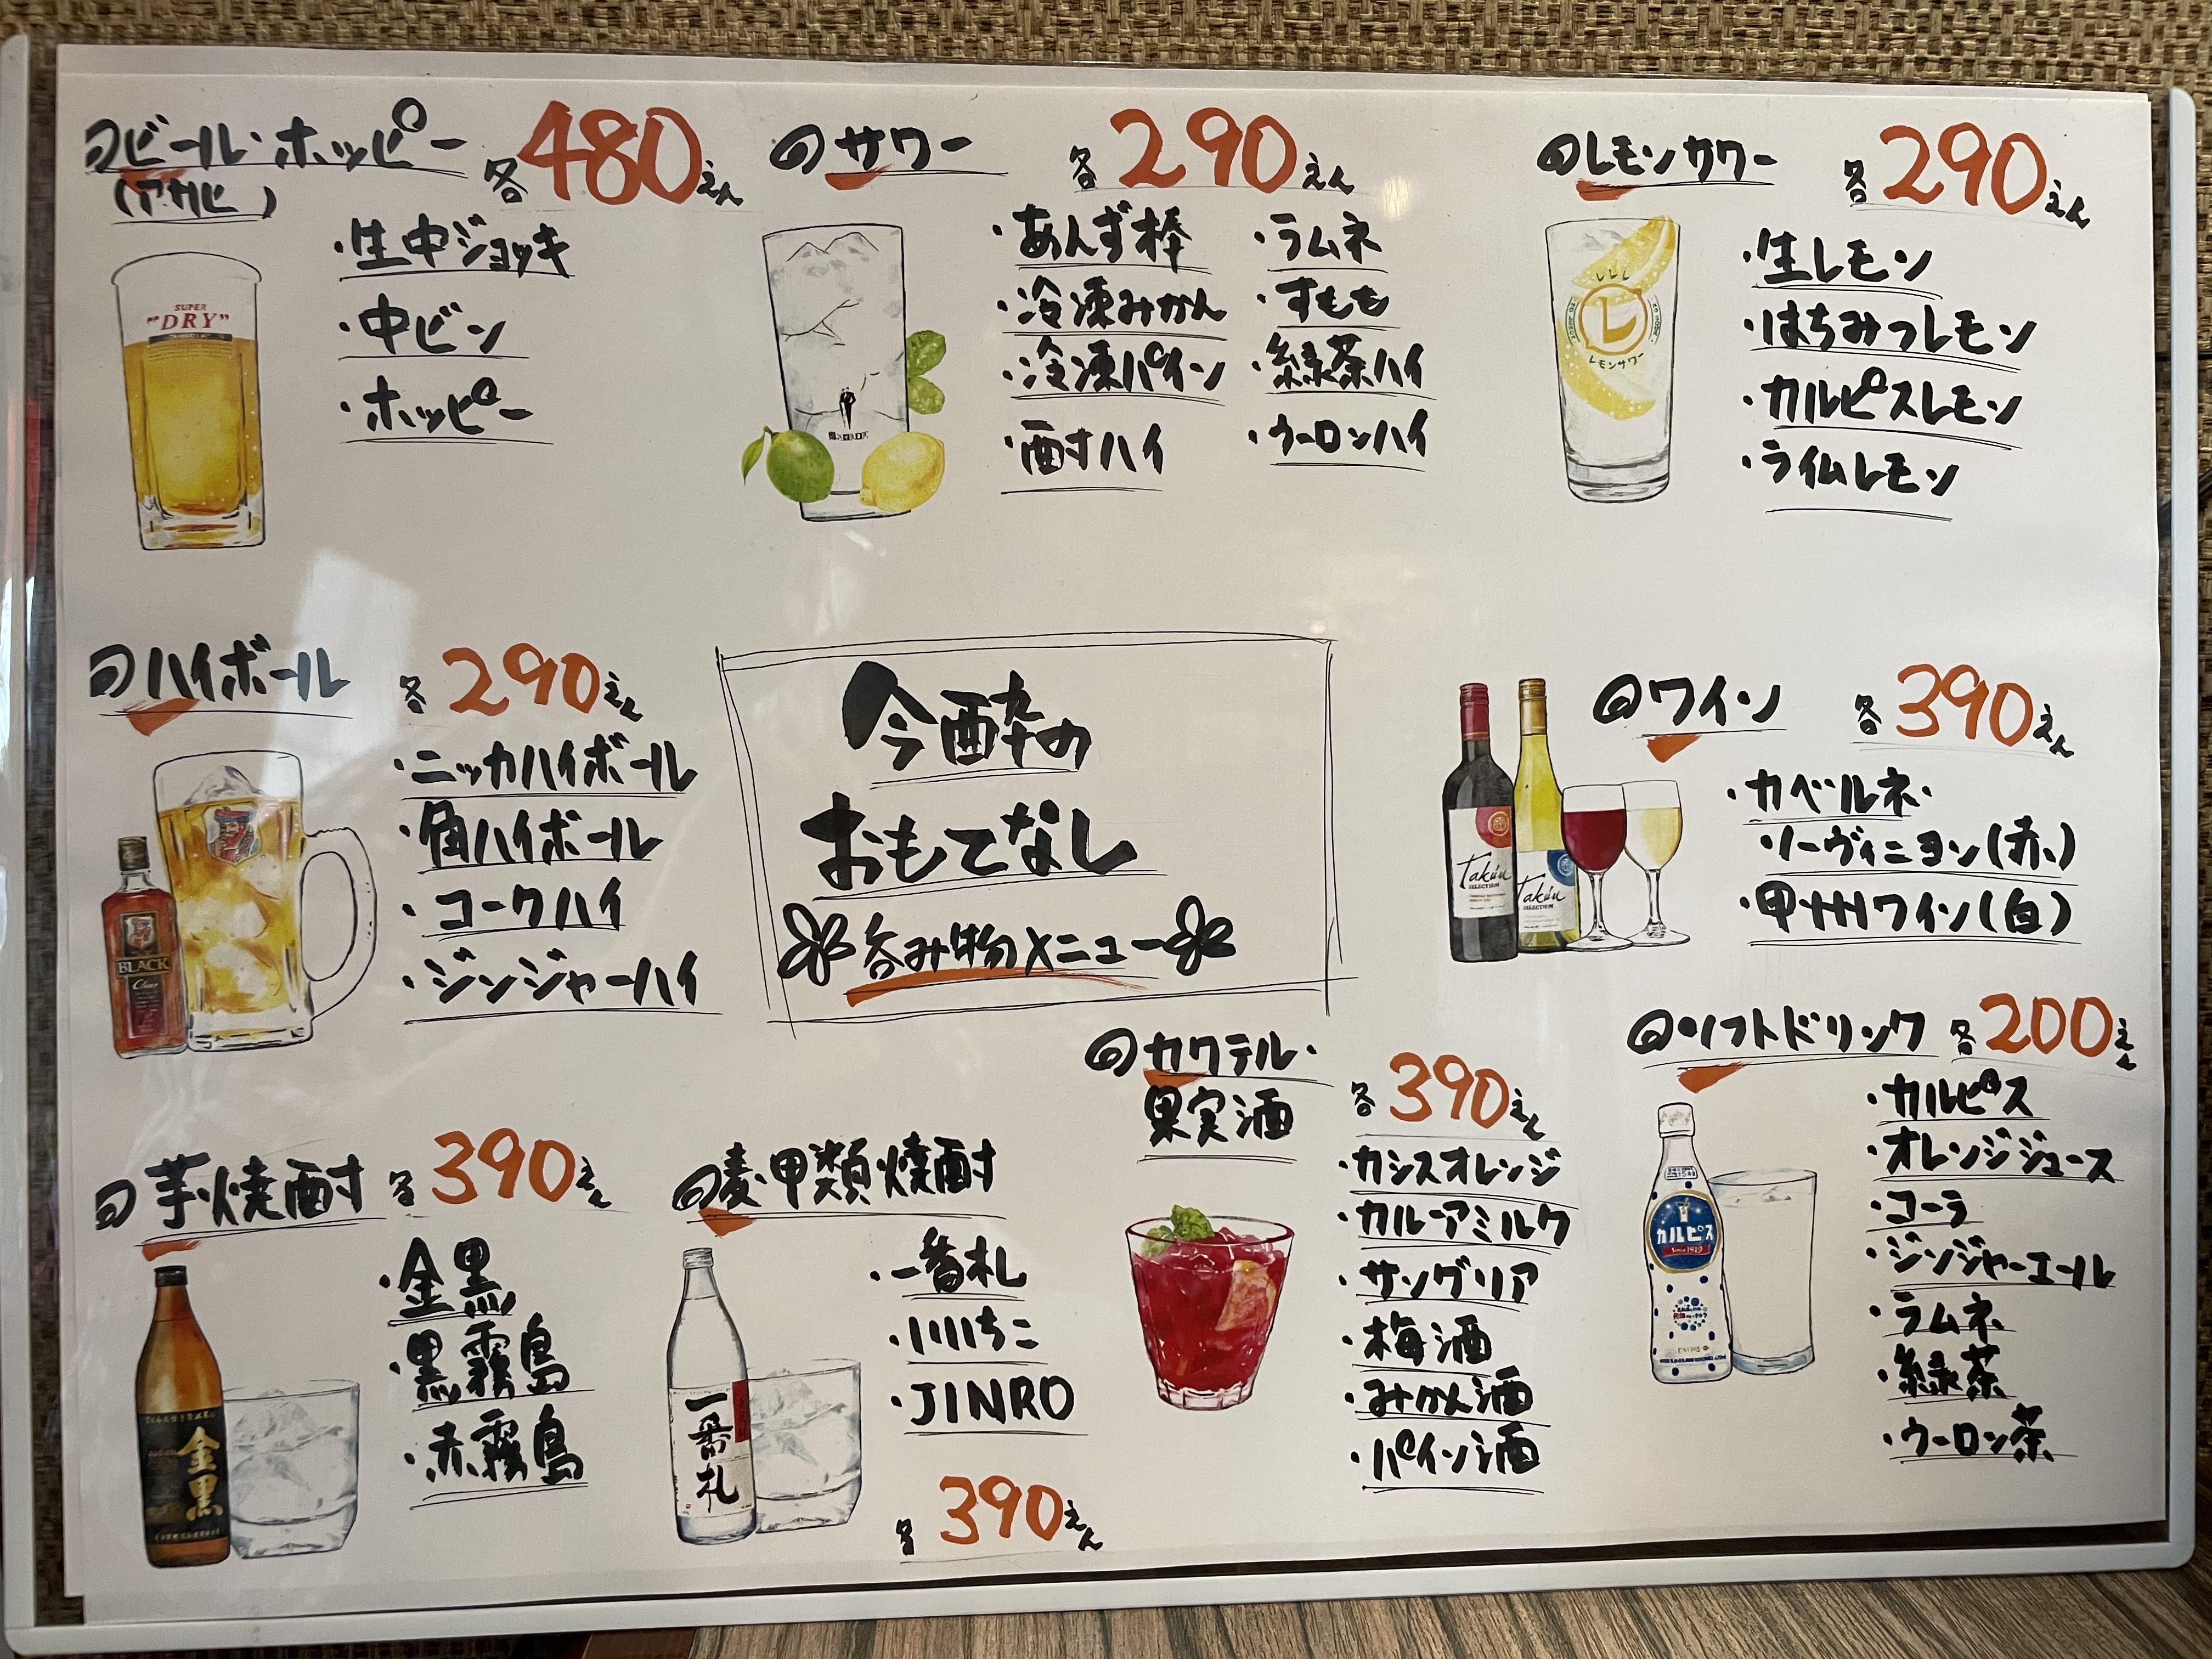 ビール・ホッピー 各480えん
(アサヒ)
・生中ジョッキ
・中ビン
・ホッピー
SUPER
"DRY"
サワー 各290えん
・あんず棒
・冷凍みかん
・冷凍パイン
・酎ハイ
・ラムネ
・すもも
・緑茶ハイ
・ウーロンハイ
レモンサワー 各290えん
・生レモン
・はちみつレモン
・カルピスレモン
・ライムレモン
レ
レモンサワー
ハイボール 各290えん
・ニッカハイボール
・角ハイボール
・コークハイ
・ジンジャーハイ
BLACK
Clear
今酔の
おもてなし
呑み物メニュー
ワイン 各390えん
・カベルネ・
ソーヴィニヨン(赤)
・甲州ワイン(白)
Takun
SELECTION
Takun
SELECTION
芋焼酎 各390えん
・金黒
・黒霧島
・赤霧島
金黒
麦・甲類焼酎
・一番札
・いいちこ
・JINRO
各390えん
一番札
カクテル・
果実酒 各390えん
・カシスオレンジ
・カルーアミルク
・サングリア
・梅酒
・みかん酒
・パイン酒
ソフトドリンク 各200えん
・カルピス
・オレンジジュース
・コーラ
・ジンジャーエール
・ラムネ
・緑茶
・ウーロン茶
カルピス
Since 1919